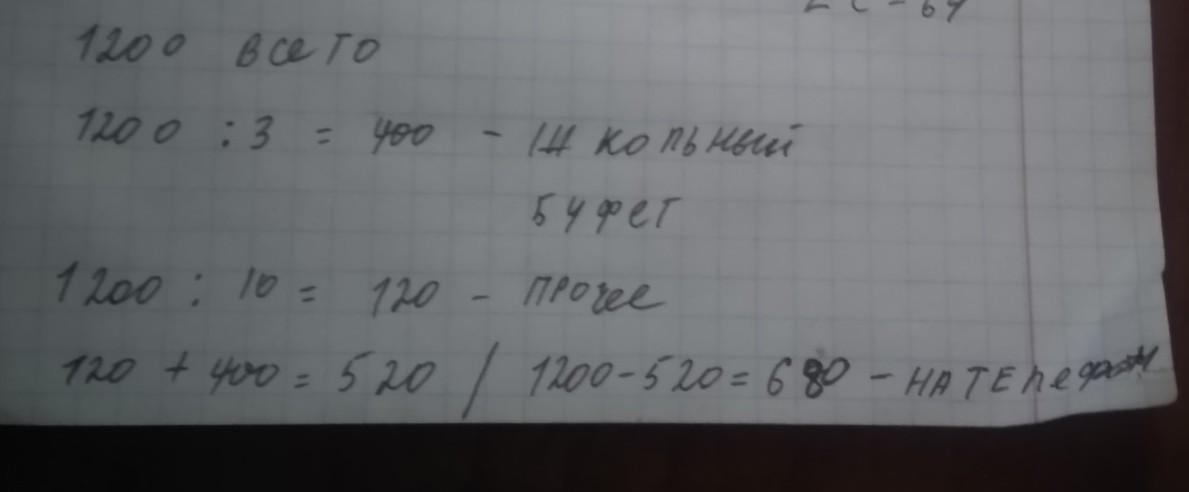 1200 всего
1200 : 3 = 400 - школьный
буфет
1200 : 10 = 120 - прочее
120 + 400 = 520 / 1200 - 520 = 680 - на телефон